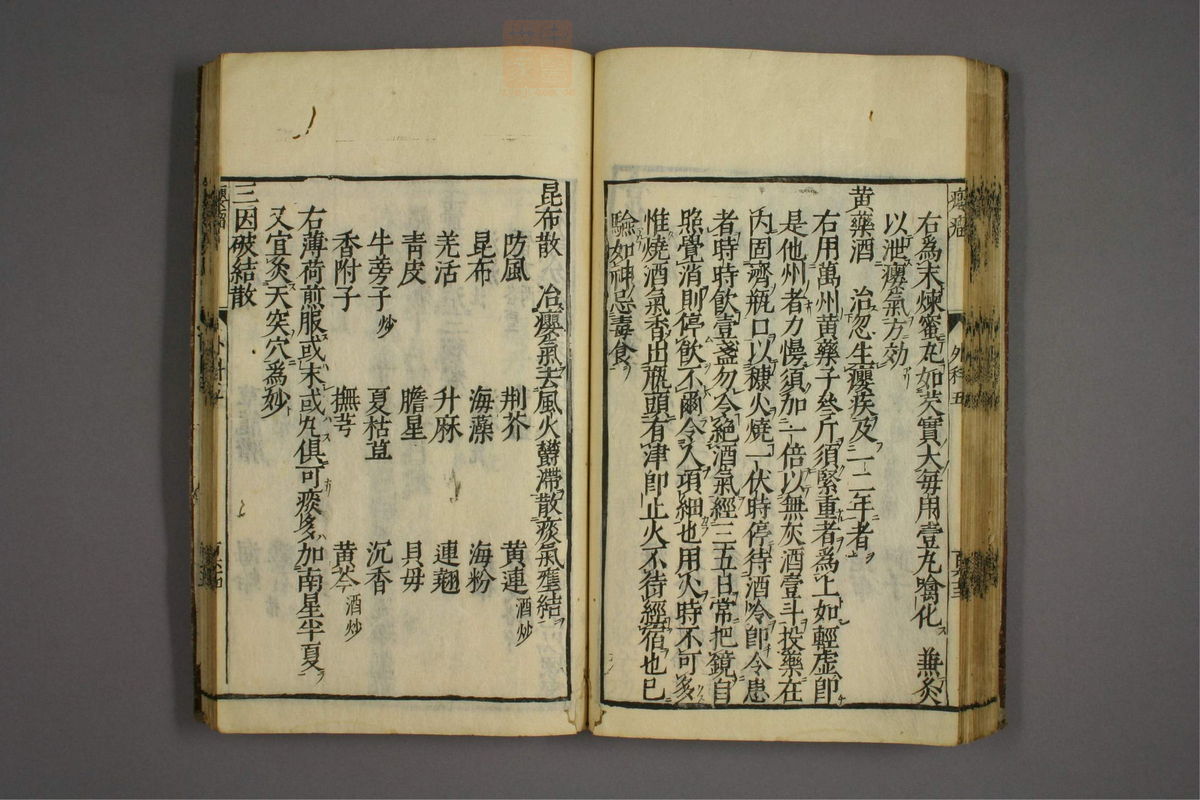 癭瘤
外科五
右爲末煉蜜丸如芡實大每用壹丸噙化 兼灸
以泄癭氣方効
黃藥酒 治忽生癭疾及一二年者
右用萬州黃藥子叁斤須緊重者爲上如輕虛卽
是他州者力慢須加一倍以無灰酒壹斗投藥在
內固濟瓶口以糠火燒一伏時停待酒冷卽令患
者時時飮壹盞勿令絕酒氣經三五日常把鏡自
照覺消則停飮不爾令人項細也用火時不可多
惟燒酒氣香出瓶頭有津卽止火不待經宿也已
驗如神忌毒食
昆布散 治癭氣去風火欝滯散痰氣壅結
防風 荆芥 黃連酒炒
昆布 海藻 海粉
羌活 升麻 連翹
青皮 膽星 貝母
牛旁子炒 夏枯草 沉香
香附子 撫芎 黃芩酒炒
右薄荷煎服或末或丸俱可痰多加南星半夏
又宜灸天突穴爲妙
三因破結散